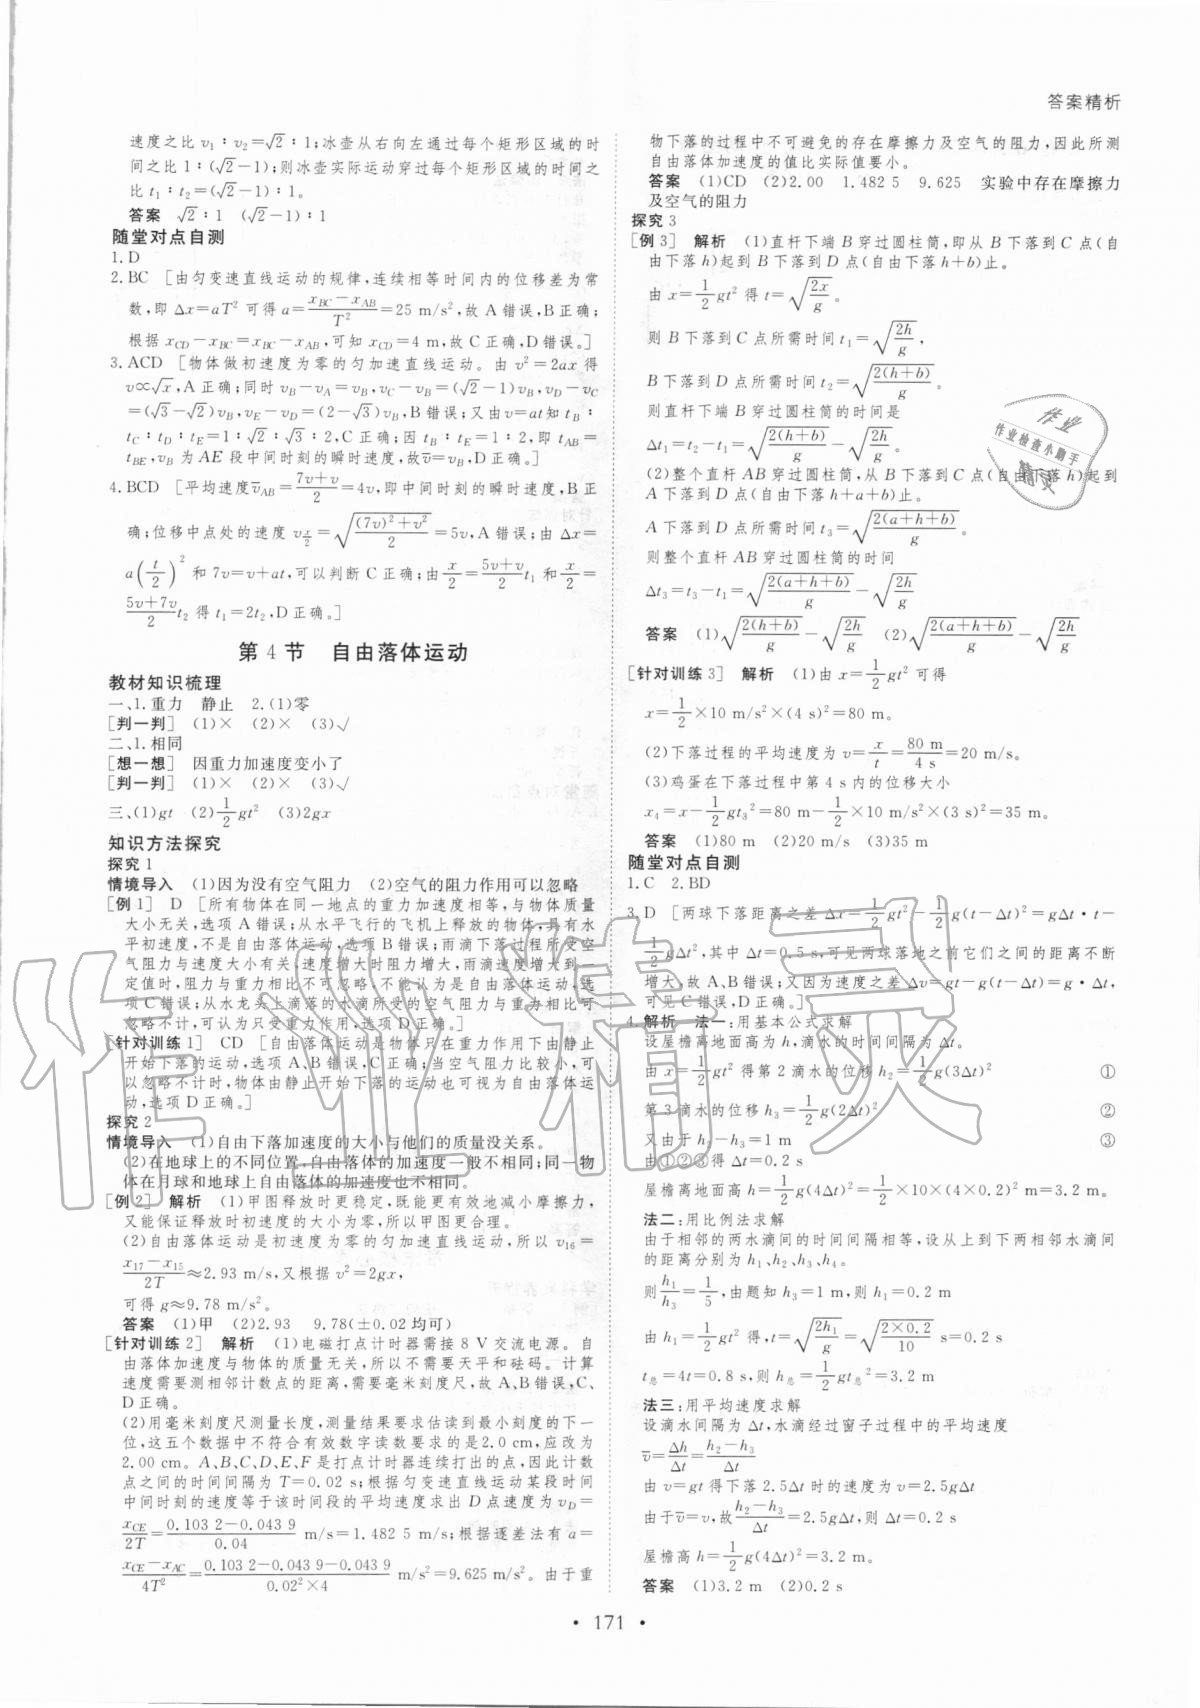 答案精析
速度之比 v₁∶v₂=√2∶1;冰壶从右向左通过每个矩形区域的时
间之比 1∶(√2-1);则冰壶实际运动穿过每个矩形区域的时间之
比 t₁∶t₂=(√2-1)∶1。
答案 √2∶1 (√2-1)∶1
随堂对点自测
1. D
2. BC [由匀变速直线运动的规律,连续相等时间内的位移差为常
数,即 Δx=aT² 可得 a=(x_BC-x_AB)/T²=25 m/s²,故 A 错误,B 正确;
根据 x_CD-x_BC=x_BC-x_AB,可知 x_CD=4 m,故 C 正确,D 错误。]
3. ACD [物体做初速度为零的匀加速直线运动。由 v²=2ax 得
v∝√x,A 正确;同时 v_B-v_A=v_B,v_C-v_B=(√2-1)v_B,v_D-v_C
=(√3-√2)v_B,v_E-v_D=(2-√3)v_B,B 错误;又由 v=at 知 t_B∶
t_C∶t_D∶t_E=1∶√2∶√3∶2,C 正确;因 t_B∶t_E=1∶2,即 t_AB=
t_BE,v_B 为 AE 段中间时刻的瞬时速度,故v̄=v_B,D 正确。]
4. BCD [平均速度v̄_AB=(7v+v)/2=4v,即中间时刻的瞬时速度,B 正
确;位移中点处的速度 v_(x/2)=√(((7v)²+v²)/2)=5v,A 错误;由 Δx=
a(t/2)² 和 7v=v+at,可以判断 C 正确;由 x/2=(5v+v)/2 t₁ 和 x/2=
(5v+7v)/2 t₂ 得 t₁=2t₂,D 正确。]
第 4 节 自由落体运动
教材知识梳理
一、1. 重力 静止 2. (1)零
[判一判] (1)× (2)× (3)√
二、1. 相同
[想一想] 因重力加速度变小了
[判一判] (1)× (2)× (3)√
三、(1)gt (2)1/2 gt² (3)2gx
知识方法探究
探究 1
情境导入 (1)因为没有空气阻力 (2)空气的阻力作用可以忽略
[例 1] D [所有物体在同一地点的重力加速度相等,与物体质量
大小无关,选项 A 错误;从水平飞行的飞机上释放的物体,具有水
平初速度,不是自由落体运动,选项 B 错误;雨滴下落过程所受空
气阻力与速度大小有关,速度增大时阻力增大,雨滴速度增大到一
定值时,阻力与重力相比不可忽略,不能认为是自由落体运动,选
项 C 错误;从水龙头上滴落的水滴所受的空气阻力与重力相比可
忽略不计,可认为只受重力作用,选项 D 正确。]
[针对训练 1] CD [自由落体运动是物体只在重力作用下由静止
开始下落的运动,选项 A、B 错误,C 正确;当空气阻力比较小,可
以忽略不计时,物体由静止开始下落的运动也可视为自由落体运
动,选项 D 正确。]
探究 2
情境导入 (1)自由下落加速度的大小与他们的质量没关系。
(2)在地球上的不同位置,自由落体的加速度一般不相同;同一物
体在月球和地球上自由落体的加速度也不相同。
[例 2] 解析 (1)甲图释放时更稳定,既能更有效地减小摩擦力,
又能保证释放时初速度的大小为零,所以甲图更合理。
(2)自由落体运动是初速度为零的匀加速直线运动,所以 v₁₆=
(x₁₇-x₁₅)/2T≈2.93 m/s,又根据 v²=2gx,
可得 g≈9.78 m/s²。
答案 (1)甲 (2)2.93 9.78(±0.02 均可)
[针对训练 2] 解析 (1)电磁打点计时器需接 8 V 交流电源。自
由落体加速度与物体的质量无关,所以不需要天平和砝码。计算
速度需要测相邻计数点的距离,需要毫米刻度尺,故 A、B 错误,C、
D 正确。
(2)用毫米刻度尺测量长度,测量结果要求估读到最小刻度的下一
位,这五个数据中不符合有效数字读数要求的是2.0 cm,应改为
2.00 cm。A、B、C、D、E、F 是打点计时器连续打出的点,因此计数
点之间的时间间隔为 T=0.02 s;根据匀变速直线运动某段时间
中间时刻的速度等于该时间段的平均速度求出 D 点速度为 v_D=
x_CE/2T=(0.103 2-0.043 9)/0.04 m/s=1.482 5 m/s;根据逐差法有 a=
(x_CE-x_AC)/4T²=(0.103 2-0.043 9-0.043 9)/(0.02²×4)=9.625 m/s²。由于重
物下落的过程中不可避免的存在摩擦力及空气的阻力,因此所测
自由落体加速度的值比实际值要小。
答案 (1)CD (2)2.00 1.482 5 9.625 实验中存在摩擦力
及空气的阻力
探究 3
[例 3] 解析 (1)直杆下端 B 穿过圆柱筒,即从 B 下落到 C 点(自
由下落 h)起到 B 下落到 D 点(自由下落 h+b)止。
由 x=1/2 gt² 得 t=√(2x/g)。
则 B 下落到 C 点所需时间 t₁=√(2h/g),
B 下落到 D 点所需时间 t₂=√(2(h+b)/g)。
则直杆下端 B 穿过圆柱筒的时间是
Δt₁=t₂-t₁=√(2(h+b)/g)-√(2h/g)。
(2)整个直杆 AB 穿过圆柱筒,从 B 下落到 C 点(自由下落 h)起到
A 下落到 D 点(自由下落 h+a+b)止。
A 下落到 D 点所需时间 t₃=√(2(a+h+b)/g)
则整个直杆 AB 穿过圆柱筒的时间
Δt₃=t₃-t₁=√(2(a+h+b)/g)-√(2h/g)
答案 (1)√(2(h+b)/g)-√(2h/g) (2)√(2(a+h+b)/g)-√(2h/g)
[针对训练 3] 解析 (1)由 x=1/2 gt² 可得
x=1/2×10 m/s²×(4 s)²=80 m。
(2)下落过程的平均速度为 v=x/t=80 m/4 s=20 m/s。
(3)鸡蛋在下落过程中第 4 s 内的位移大小
x₄=x-1/2 gt₃²=80 m-1/2×10 m/s²×(3 s)²=35 m。
答案 (1)80 m (2)20 m/s (3)35 m
随堂对点自测
1. C 2. BD
3. D [两球下落距离之差 Δx=1/2 gt²-1/2 g(t-Δt)²=gΔt·t-
1/2 gΔt²,其中 Δt=0.5 s,可见两球落地之前它们之间的距离不断
增大,故 A、B 错误;又因为速度之差 Δv=gt-g(t-Δt)=g·Δt,
可见 C 错误,D 正确。]
4. 解析 法一:用基本公式求解
设屋檐离地面高为 h,滴水的时间间隔为 Δt。
由 x=1/2 gt² 得第 2 滴水的位移 h₂=1/2 g(3Δt)² ①
第 3 滴水的位移 h₃=1/2 g(2Δt)² ②
又由于 h₂-h₃=1 m ③
由①②③得 Δt=0.2 s
屋檐离地面高 h=1/2 g(4Δt)²=1/2×10×(4×0.2)² m=3.2 m。
法二:用比例法求解
由于相邻的两水滴间的时间间隔相等,设从上到下两相邻水滴间
的距离分别为 h₁、h₂、h₃、h₄。
则 h₁/h₃=1/5,由题知 h₃=1 m,所以 h₁=0.2 m
由 h₁=1/2 gt² 得,t=√(2h₁/g)=√(2×0.2/10) s=0.2 s
t总=4t=0.8 s,则 h总=1/2 gt总²=3.2 m
法三:用平均速度求解
设滴水间隔为 Δt,水滴经过窗子过程中的平均速度
v̄=Δh/Δt=(h₂-h₃)/Δt
由 v=gt 得下落 2.5Δt 时的速度为 v=2.5gΔt
由于v̄=v,故(h₂-h₃)/Δt=2.5gΔt,则 Δt=0.2 s
屋檐高 h=1/2 g(4Δt)²=3.2 m。
答案 (1)3.2 m (2)0.2 s
• 171 •
作业
作业检查小助手
精灵
作业精灵